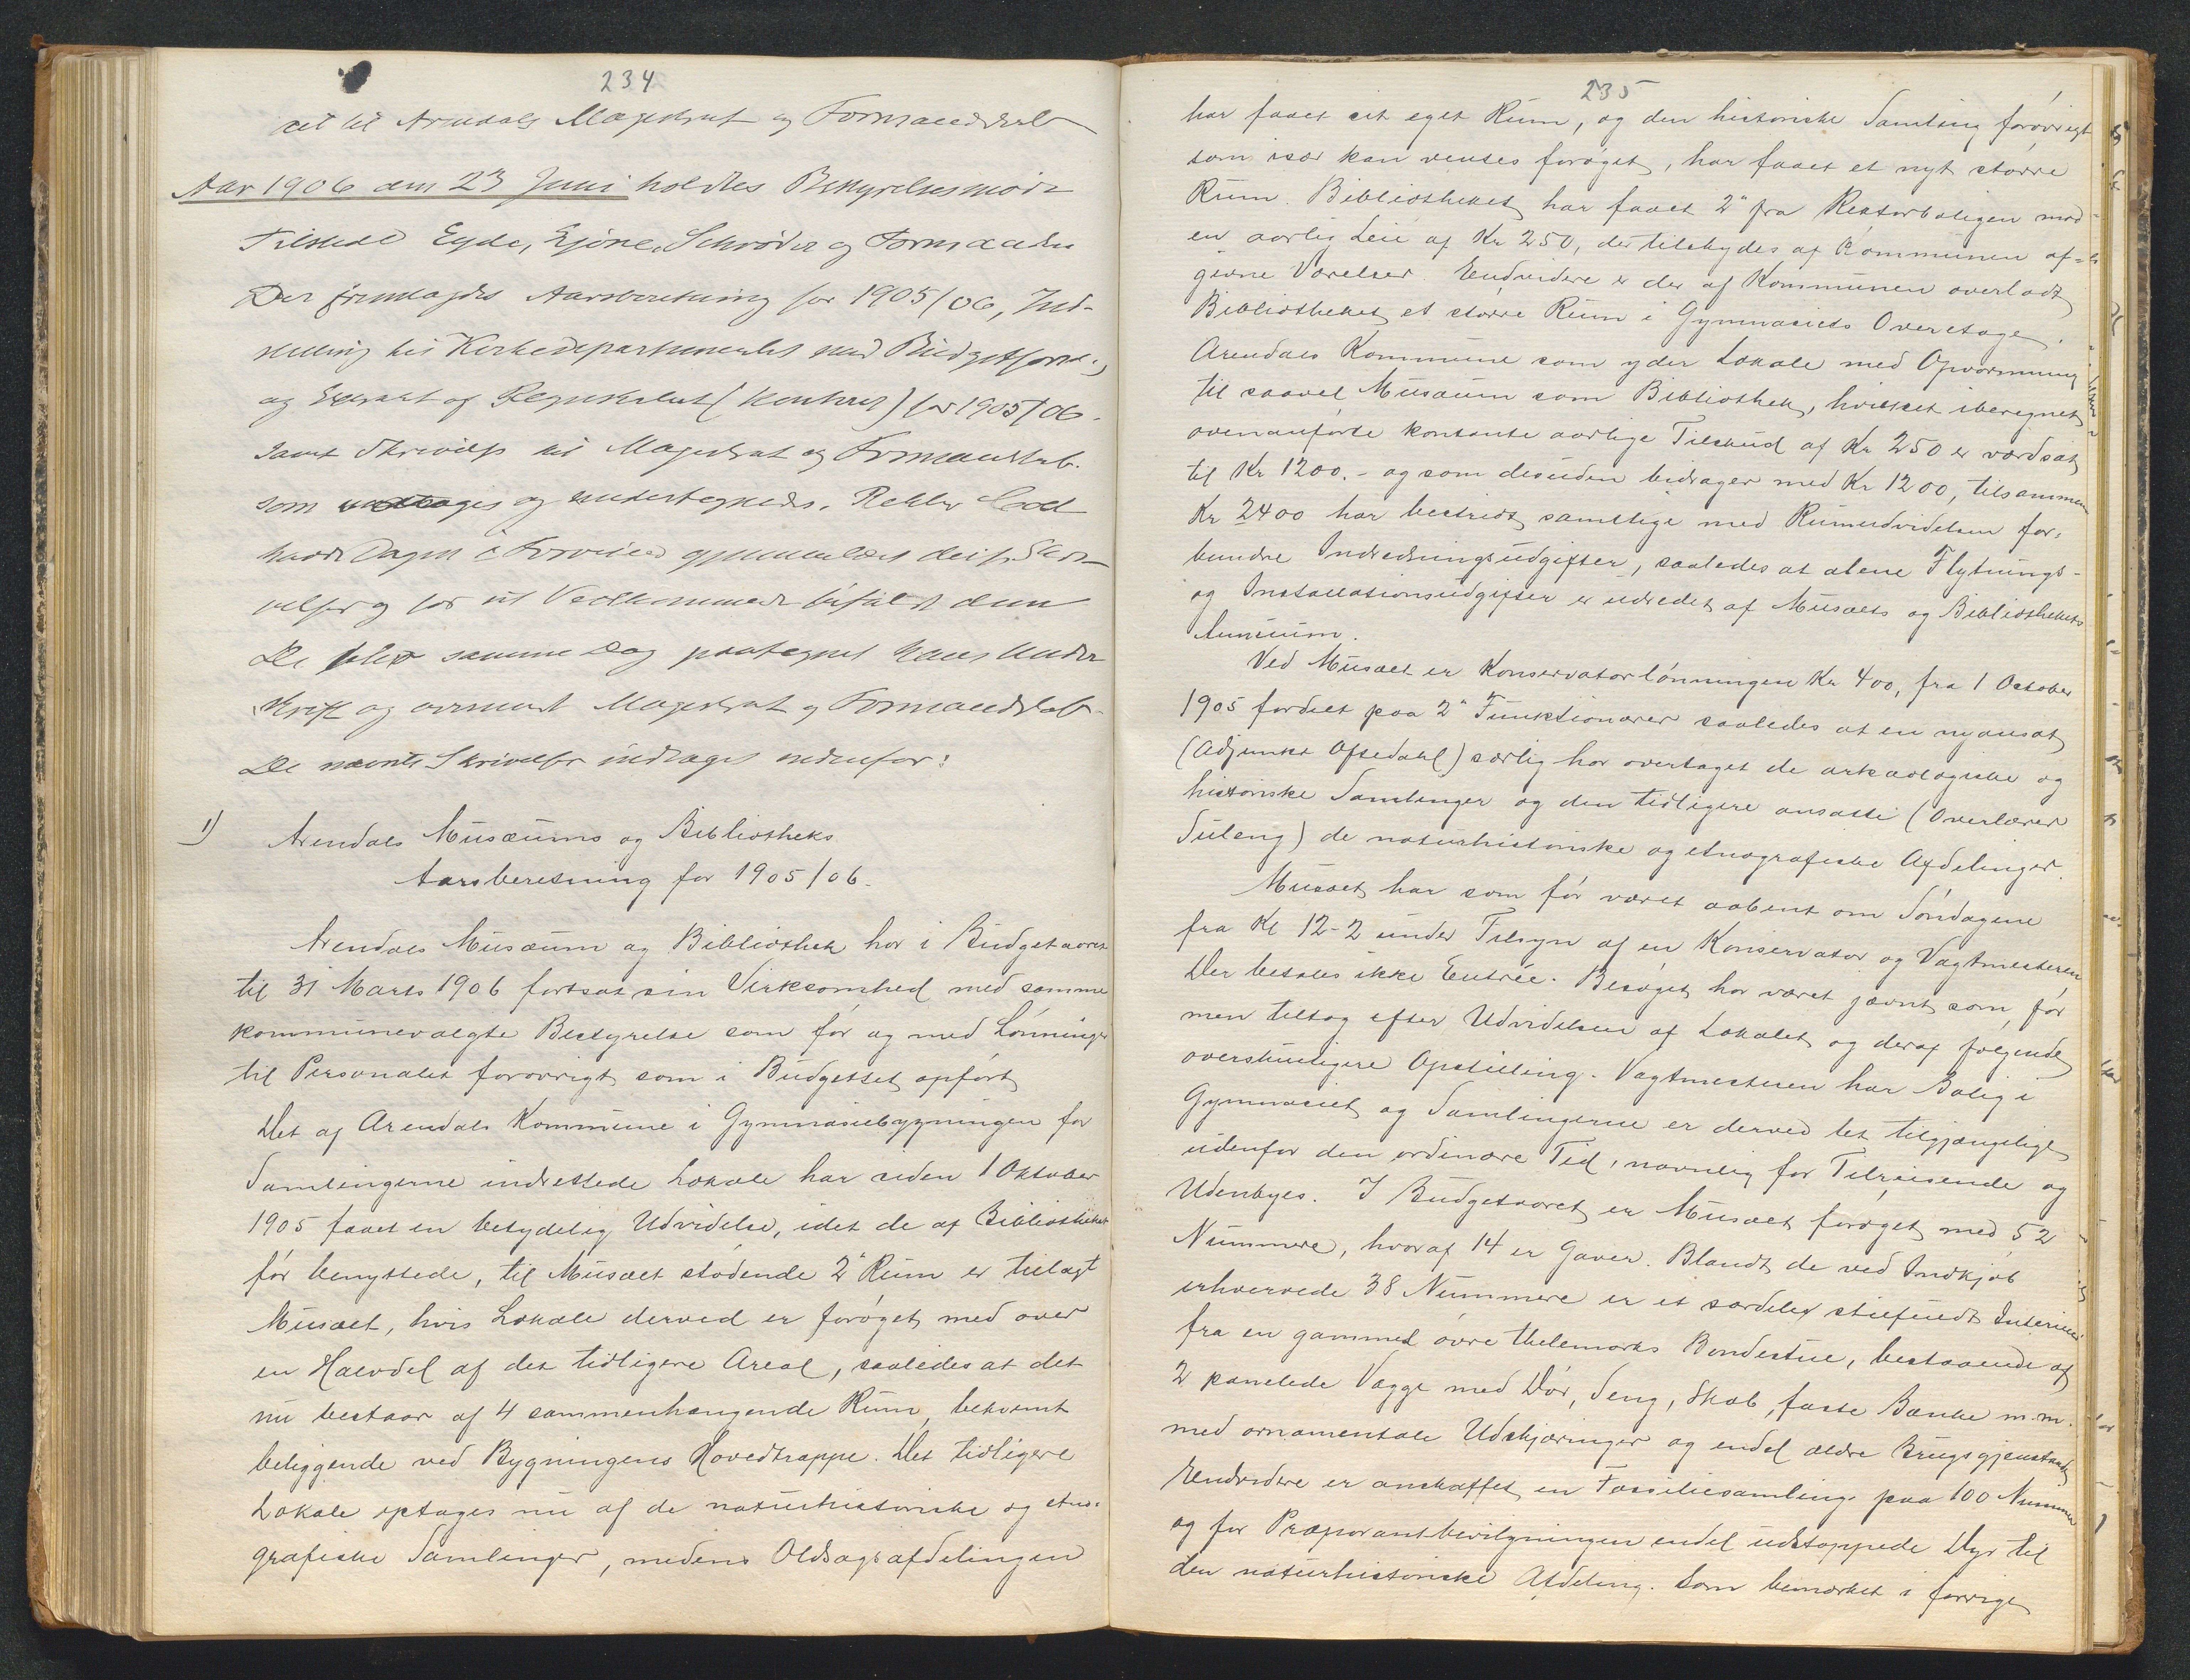 234
til Arendals Magistrat og Formandskab
Aar 1906 den 23 Juni holdtes Bestyrelsesmøde
Tilstede Eyde, Schrøder og Formanden
Der fremlagdes Aarsberetning for 1905/06, Ind-
stilling til Kirkedepartementet med Budgetforsl.,
og Extrakt af Regnskabet (kontrol) for 1905/06.
samt Skrivelse til Magistrat og Formandskab.
som vedtoges og undertegnedes. Rektor
havde Dagen i Forveien gjennemlæst disse Skri-
velser og for sit Vedkommende bifaldt dem
De blev samme Dag paategnet hans Under
skrift og oversendt Magistrat og Formandskab.
De nævnte Skrivelser indtages nedenfor:
1) Arendals Musæums og Bibliotheks
Aarsberetning for 1905/06.
Arendals Musæum og Bibliothek har i Budgetaaret
til 31 Marts 1906 fortsat sin Virksomhed med samme
kommunevalgte Bestyrelse som før og med Lønninger
til Personalet forøvrigt som i Budgettet opført
Det af Arendals Kommune i Gymnasiebygningen for
Samlingerne indrettede Lokale har siden 1 Oktober
1905 faaet en betydelig Udvidelse, idet de af Bibliotheket
før benyttede, til Musæet stødende 2 Rum er tillagt
Musæet, hvis Lokale derved er forøget med over
en Halvdel af det tidligere Areal, saaledes at det
nu bestaar af 4 sammenhængende Rum, bekvemt
beliggende ved Bygningens Hovedtrappe. Det tidligere
Lokale optages nu af de naturhistoriske og etno-
grafiske Samlinger, medens Oldsagsafdelingen
235
har faaet sit eget Rum, og den historiske Samling forøvrigt
som især kan ventes forøget, har faaet et nyt større
Rum. Bibliotheket har faaet 2 fra Rektorboligen mod
en aarlig Leie af Kr 250, der tilskydes af Kommunen af-
givne Værelser. Endvidere er der af Kommunen overladt
Bibliotheket et større Rum i Gymnasiets Overetage.
Arendals Kommune som yder Lokale med Opvarmning
til saavel Musæum som Bibliothek, hvilket iberegnet
ovenanførte kontante aarlige Tilskud af Kr 250 er værdsat
til Kr 1200.- og som desuden bidrager med Kr 1200, tilsammen
Kr 2400 har bestridt samtlige med Rumudvidelsen for-
bundne Indredningsudgifter, saaledes at alene Flytnings-
og Installationsudgifter er udredet af Musæets og Bibliothekets
Annuum.
Ved Musæet er Konservatorlønningen Kr 400, fra 1 October
1905 fordelt paa 2 Funktionærer saaledes at en nyansat
(Adjunkt Ofsedahl) særlig har overtaget de arkæologiske og
historiske Samlinger og den tidligere ansatte (Overlærer
Suleng) de naturhistoriske og etnografiske Afdelinger.
Musæet har som før været aabent om Søndagene
fra Kl 12-2 under Tilsyn af en Konservator og Vagtmesteren
Der betales ikke Entrée. Besøget har været jævnt som før
men tiltog efter Udvidelsen af Lokalet og deraf følgende
overskueligere Opstilling. Vagtmesteren har Bolig i
Gymnasiet og Samlingerne er derved let tilgjængelige
udenfor den ordinære Tid, navnlig for Tilreisende og
Udenbyes. I Budgetaaret er Musæet forøget med 52
Nummere, hvoraf 14 er Gaver. Blandt de ved Indkjøb
erhvervede 38 Nummere er et særdeles stilfuldt Interieur
fra en gammel øvre Thelemarks Bondestue, bestaaende af
2 panelede Vægge med Dør, Seng, Skab, faste Bænke m.m.
med ornamentale Udskjæringer og endel ældre Brugsgjenstande
Endvidere er anskaffet en Fossiliesamling paa 100 Nummer
og for Præparantbevilgningen endel udstoppede Dyr til
den naturhistoriske Afdeling. Som bemærket i forrige